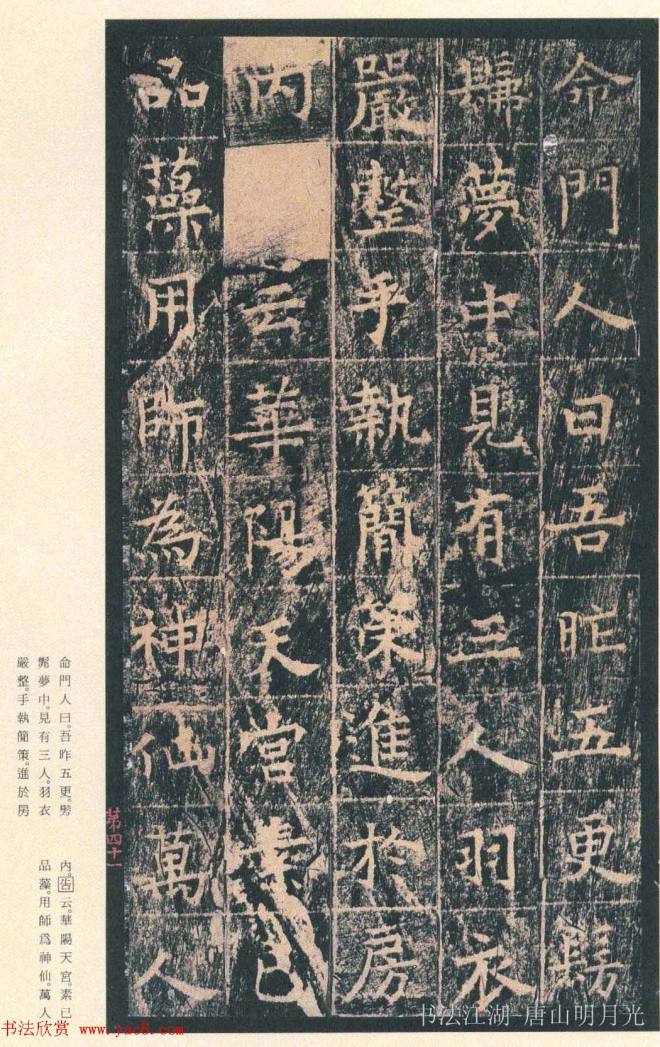 命門人曰吾昨五更髣
髴夢中見有三人羽衣
嚴整手執簡策進於房
內云華陽天宮素已
品藻用師為神仙萬人
命門人曰。吾昨五更。髣
髴夢中。見有三人。羽衣
嚴整。手執簡策。進於房
內。告云。華陽天宮。素已
品藻。用師爲神仙。萬人
第四十一
书法欣赏 www.yac8.com
书法江湖-唐山明月光